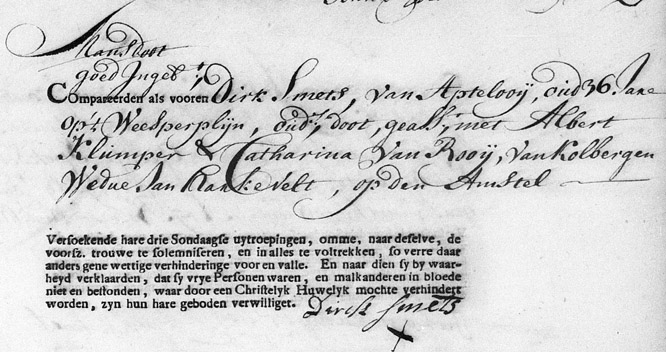 Mans doot
goed Ingeb:t,
Compareerden als vooren Dirk Smets, van Aptelooij, oud 36 Jare
op't Weesperplijn, oud:s doot, geass:t met Albert
Klumper & Catharina Van Rooij, van Kolbergen
Wedue Jan Rankevelt, op den Amstel
Versoekende hare drie Sondaagse uytroepingen, omme, naar deselve, de
voorsz. trouwe te solemniseren, en in alles te voltrekken, so verre daar
anders gene wettige verhinderinge voor en valle. En naar dien sy by waar-
heyd verklaarden, dat sy vrye Personen waren, en malkanderen in bloede
niet en bestonden, waar door een Christelyk Huwelyk mochte verhindert
worden, zyn hun hare geboden verwilliget. Dirck Smets